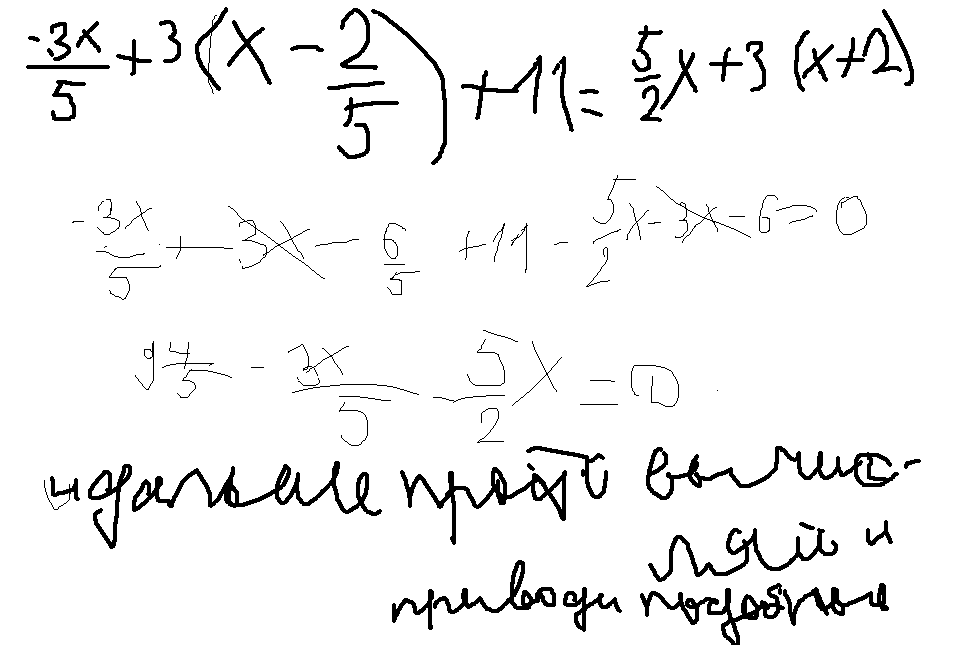 -3x/5 + 3(x - 2/5) + 11 = 5/2 x + 3 (x+2)
-3x/5 + 3x - 6/5 + 11 - 5/2 x - 3x - 6 = 0
9 4/5 - 3x/5 - 5/2 x = 0
и дальше просто вычис-
ляй и
приводи подобные